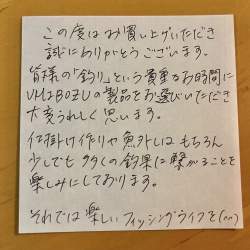 この度はお買い上げいただき
誠にありがとうございます。
皆様の「釣り」という貴重なお時間に
UMIBOZUの製品をお選びいただき
大変うれしく思います。
仕掛け作りや魚外しはもちろん
少しでも多くの釣果に繋がることを
楽しみにしております。
それでは楽しいフィッシングライフを(^^)